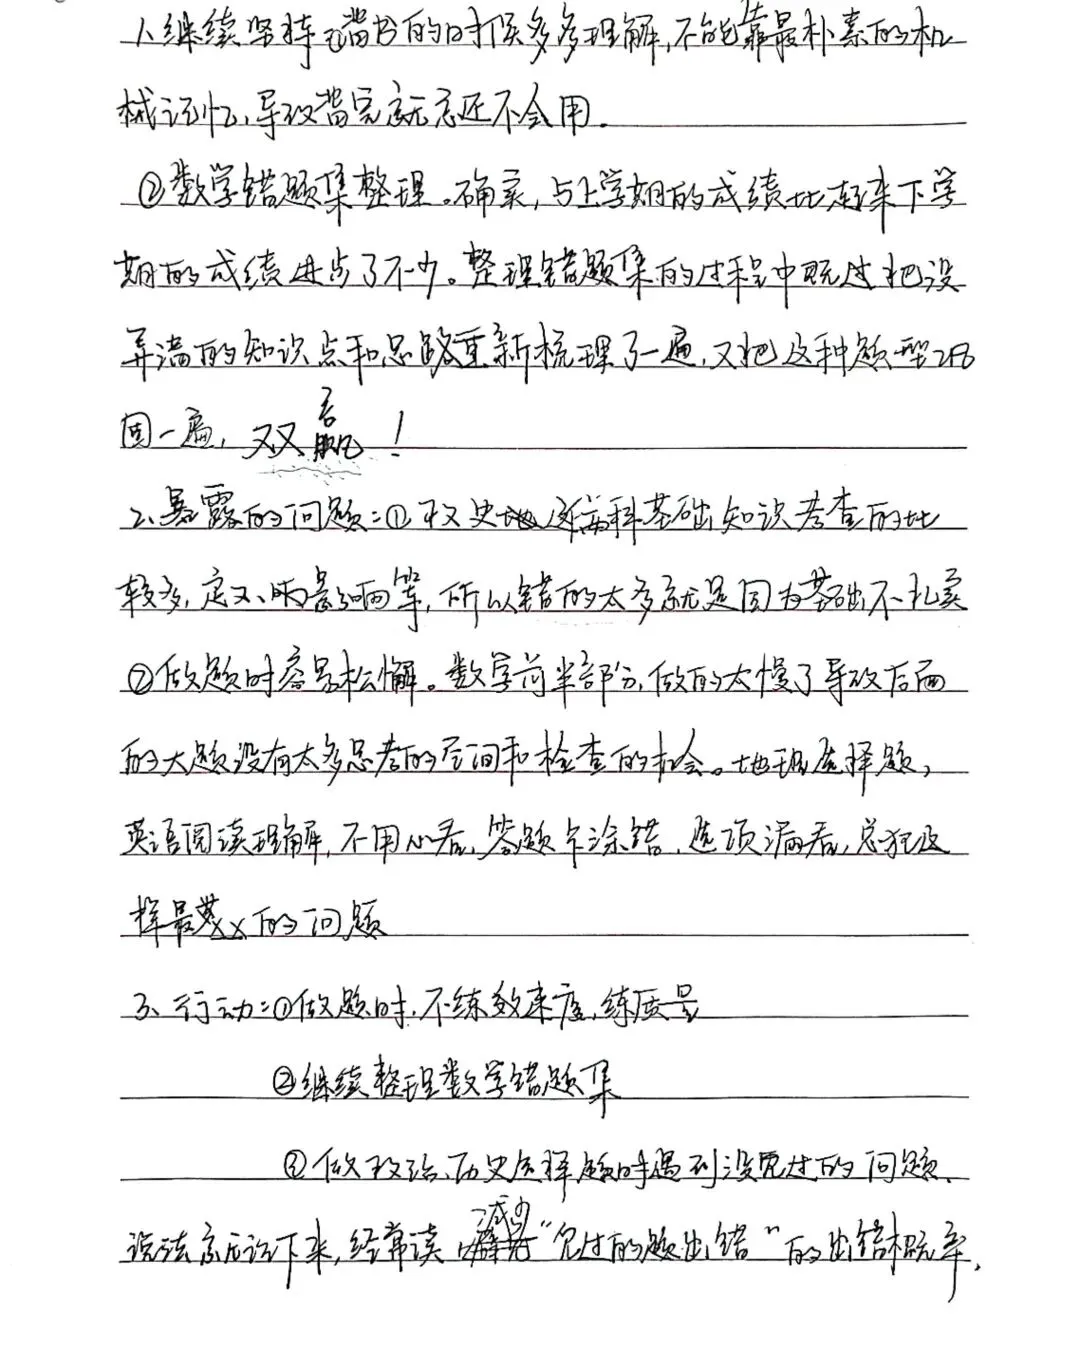 1、继续坚持背书的时候多多理解,不能靠最朴素的机
械记忆,导致背完就忘还不会用.
②数学错题集整理。确实,与上学期的成绩比起来下学
期的成绩进步了不少。整理错题集的过程中既过把没
弄清的知识点和思路重新梳理了一遍,又把这种题型巩
固一遍,双赢!
2、暴露的问题:①政史地这种科基础知识考查的比
较多,定义、影响等,所以错的太多就是因为基础不扎实
②做题时容易松懈。数学前半部分,做的太慢了导致后面
的大题没有太多思考的空间和检查的机会。地理选择题,
英语阅读理解,不用心看,答题卡涂错,选项漏看,总犯这
样最蠢的问题
3、行动:①做题时,不练效率速度,练质量
②继续整理数学错题集
③做政治、历史选择题时遇到没见过的问题、
说法末后记下来,经常读,减少“见过的题出错”的出错概率,